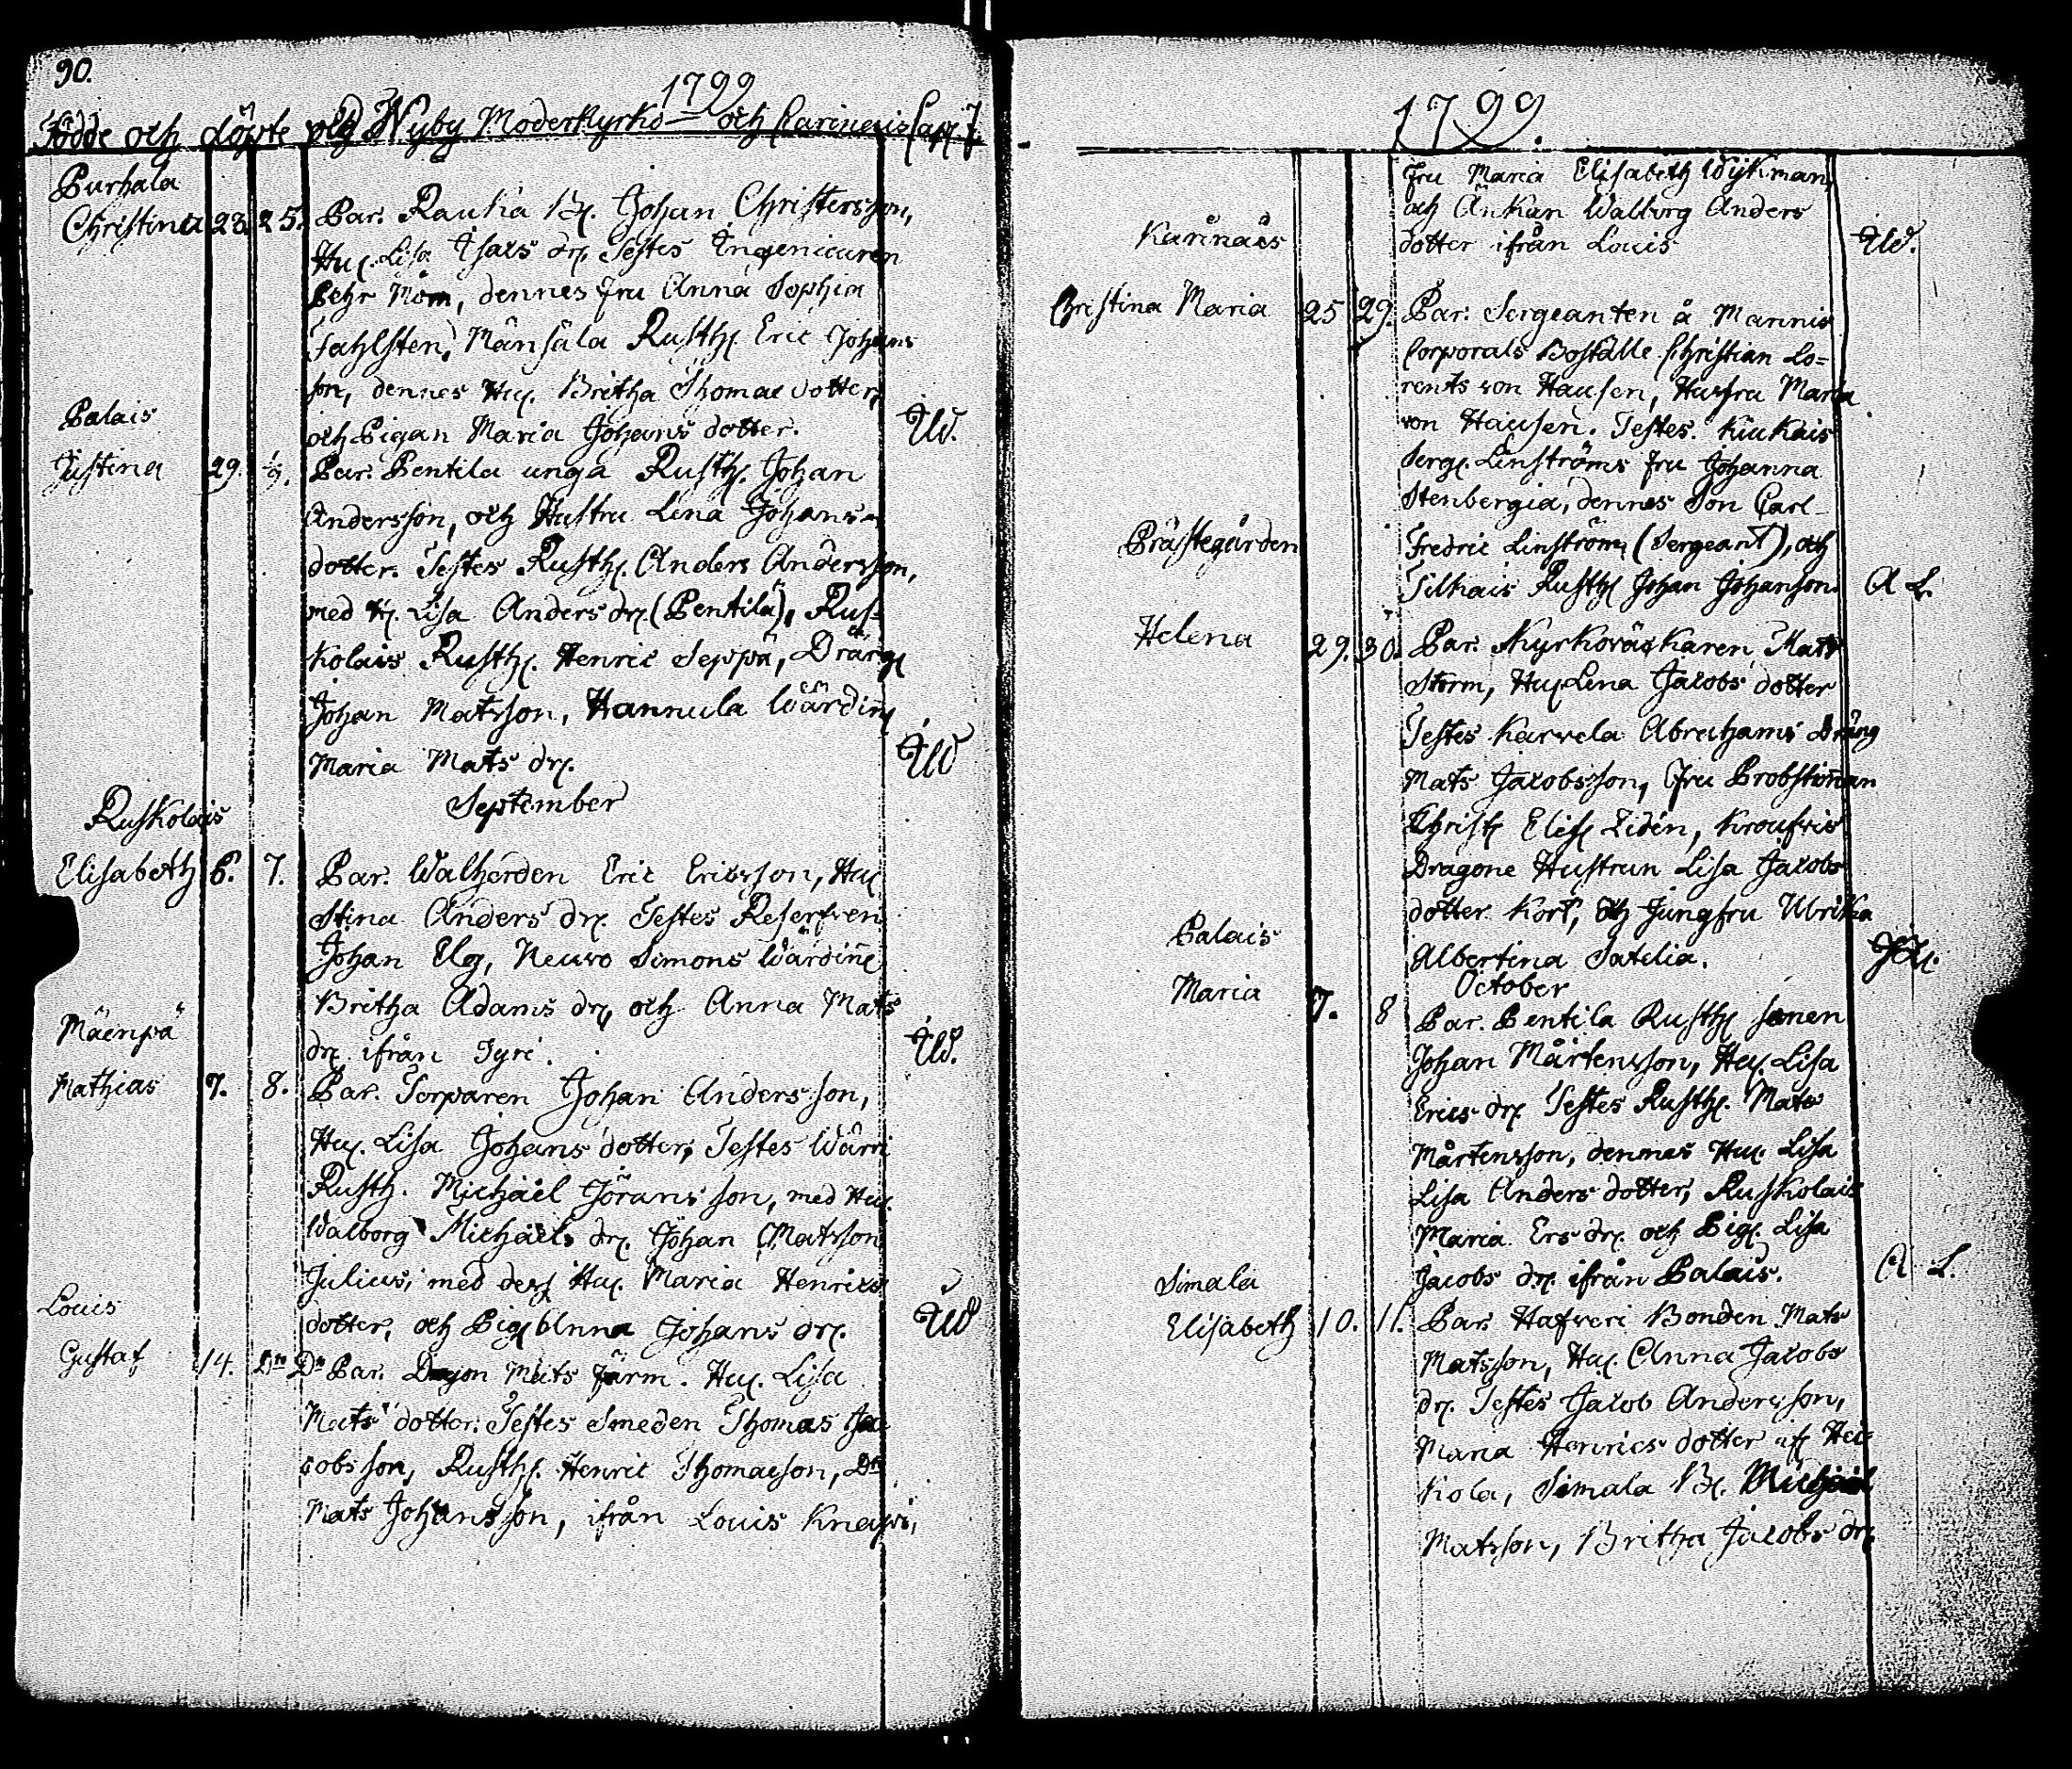 90.
1799
Födde och döpte wid Nyby Moderkyrko och Carinais Cap:
Purhala
Christina 23. 25. Par. Rauhia B. Johan Christersson,
Hu. Lisa Isacs dr. Testes Ingenieuren
Pehr Mörn, dennes fru Anna Sophia
Fahlsten, Mänsälä Rusth. Eric Johans
son, dennes Hu. Britha Thomae dotter,
och Pigan Maria Johans dotter. IW.
Palais
Justina 29. 1/9. Par. Pentila unga Rusth. Johan
Andersson, och Hustru Lena Johans
dotter. Testes Rusth. Anders Andersson,
med H. Lisa Anders dr. (Pentilä), Rus-
kolais Rusth. Henric Seppä, Dräng
Johan Matsson, Hannula Wärdin
Maria Mats dr. IW
September
Ruskolais
Elisabeth 6. 7. Par. Walherden Eric Ericsson, Hu
Stina Anders dr. Testes Reserfven
Johan Elg, Neuvo Simons Wärdin
Britha Adams dr, och Anna Mats
dr. ifrån Jyre. IW.
Mäenpä
Mathias 7. 8. Par. Torparen Johan Andersson,
Hu. Lisa Johans dotter, Testes Wärri
Rusth. Michaël Göransson, med Hu.
Walborg Michaels dr. Johan Matsson
Julius, med dess Hu. Maria Henrics
dotter, och Pig Anna Johans dr. IW
Louis
Gustaf 14. Dn Do Par. Dragon Mats Färm. Hu. Lisa
Mats dotter. Testes Smeden Thomas Ja-
cobsson, Rusth. Henric Thomaeson, Dr
Mats Johansson, ifrån Louis Knapi,
1799.
fru Maria Elisabeth Wijkman,
och Änkan Walborg Anders
dotter ifrån Louis IW.
Karinais
Christina Maria 25 29. Par. Sergeanten å Mannis
Corporals Boställe Christian Lo-
rents von Hausen, Husfru Maria
von Hausen. Testes. Kiukais
Serg. Linströms fru Johanna
Stenbergia, dennes Son Carl
Fredric Linström (Sergeant), och
Tilkais Rusth Johan Johanson. A L.
Prästegården
Helena 29. 30. Par. Kyrkowäckaren Mats
Storm, Hu Lena Jacobs dotter
Testes Karvela Abrahams Dräng
Mats Jacobsson, fru Probstinnan
Christ Elis Lidén, Kroufvis
Dragone Hustrun Lisa Jacobs
dotter Kort, och Jungfru Ulrika
Albertina Satelia.
October
Palais
Maria 7. 8 Par. Pentila Rusth sonen
Johan Mårtensson, Hu. Lisa
Erics dr. Testes Rusth. Mats
Mårtensson, dennes Hu. Lisa
Lisa Anders dotter, Ruskolais
Maria Ers dr. och Pig. Lisa
Jacobs dr. ifrån Palais. A L.
Simala
Elisabeth 10. 11. Par. Hafveri Bonden Mats
Matsson, Hu. Anna Jacobs
dr. Testes Jacob Andersson,
Maria Henrics dotter if Hei-
kola, Simala B. Michael
Matsson, Britha Jacobs dr.